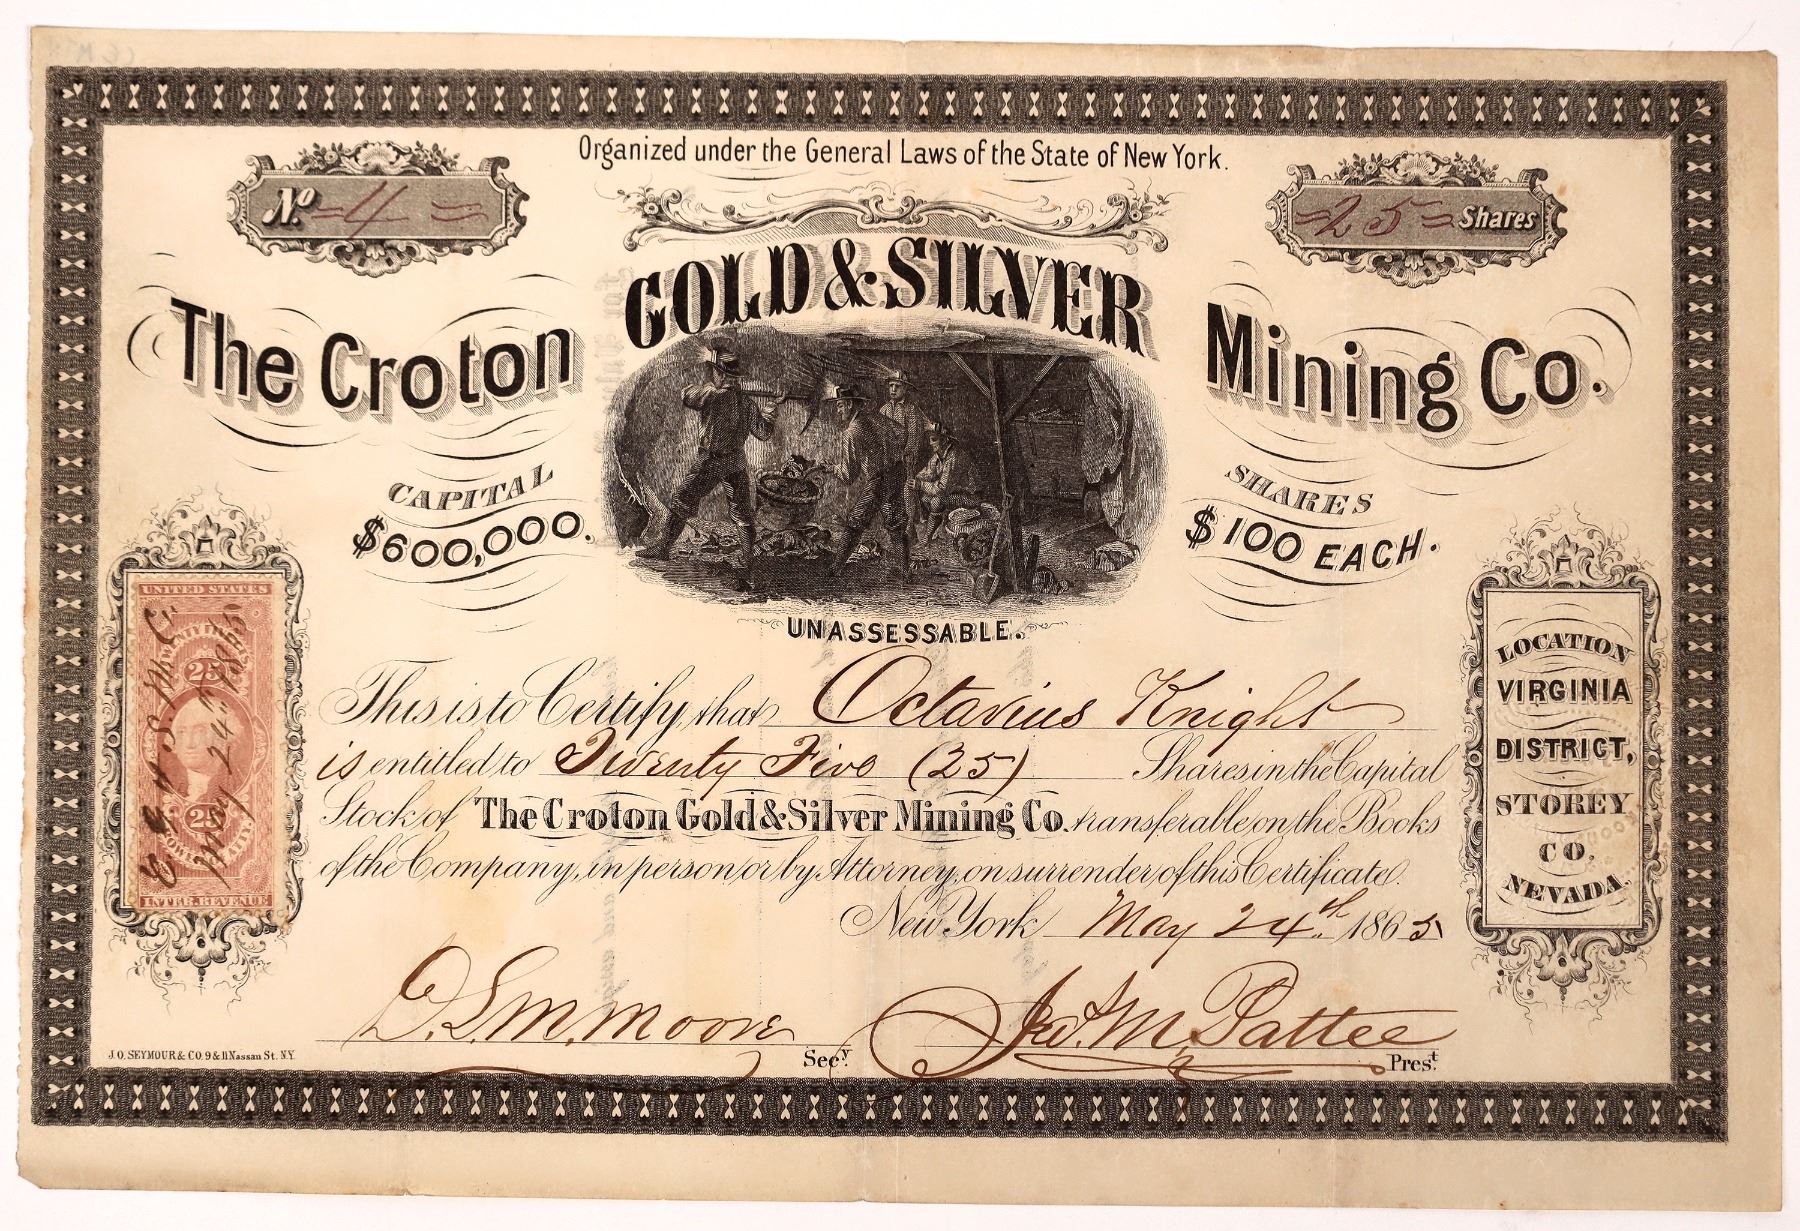 Organized under the General Laws of the State of New York.
No. = 4 =
= 25 = Shares
The Croton GOLD & SILVER Mining Co.
CAPITAL
$600,000.
SHARES
$100 EACH.
UNASSESSABLE.
UNITED STATES
25
25
INTER. REVENUE
May 24th 1865
LOCATION
VIRGINIA
DISTRICT,
STOREY
CO.
NEVADA.
This is to Certify that Octavius Knight
is entitled to Twenty Five (25) Shares in the Capital
Stock of The Croton Gold & Silver Mining Co. transferable on the Books
of the Company, in person or by Attorney, on surrender of this Certificate.
New York May 24th 1865
Moore Secy.
M. Pattee Prest.
J.O. SEYMOUR & CO. 9 & 11 Nassau St. N.Y.